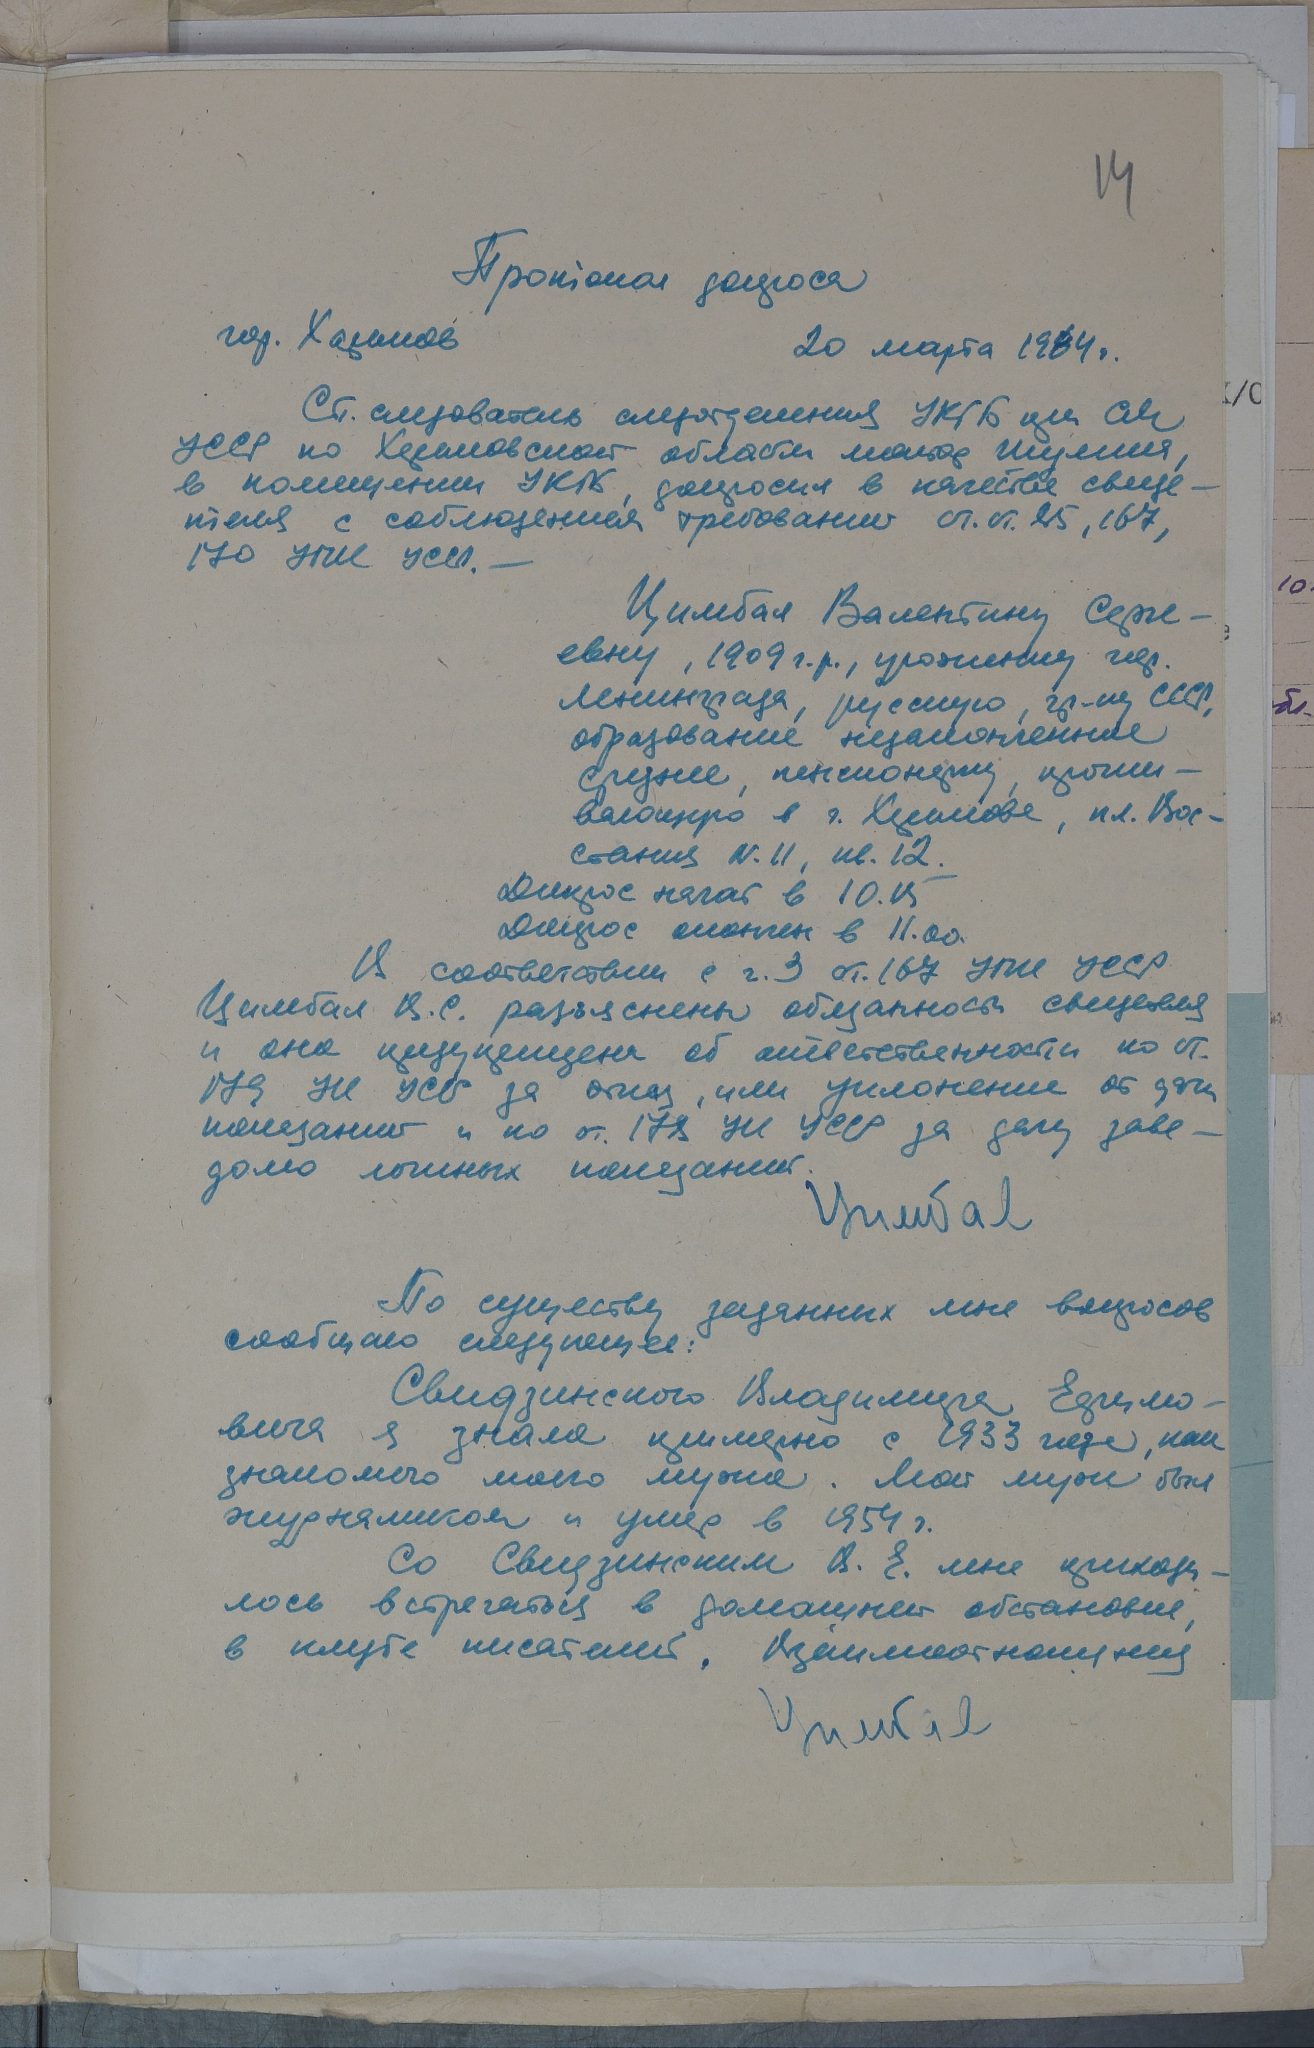 14
Протокол допроса
гор. Харьков
20 марта 1964 г.
Ст. следователь следотделения УКГБ при СМ
УССР по Харьковской области майор
в помещении УКГБ, допросил в качестве свиде-
теля с соблюдением требований ст.ст. 85, 167,
170 УПК УССР. —
Цимбал Валентину Серге-
евну, 1909 г.р., уроженку гор.
Ленинграда, русскую, гр-ку СССР,
образование незаконченное
среднее, пенсионерку, прожи-
вающую в г. Харькове, пл. Вос-
стания № 11, кв. 12.
Допрос начат в 10.15
Допрос окончен в 11.00.
В соответствии с ч. 3 ст. 167 УПК УССР
Цимбал В.С. разъяснены обязанности свидетеля
и она предупреждена об ответственности по ст.
179 УК УССР за отказ, или уклонение от дачи
показаний и по ст. 178 УК УССР за дачу заве-
домо ложных показаний.
Цимбал
По существу заданных мне вопросов
сообщаю следующее:
Свидзинского Владимира Ефимо-
вича я знала примерно с 1933 года, как
знакомого моего мужа. Мой муж был
журналистом и умер в 1954 г.
Со Свидзинским В. Е. мне приходи-
лось встречаться в домашней обстановке,
в клубе писателей. Взаимоотношения
Цимбал